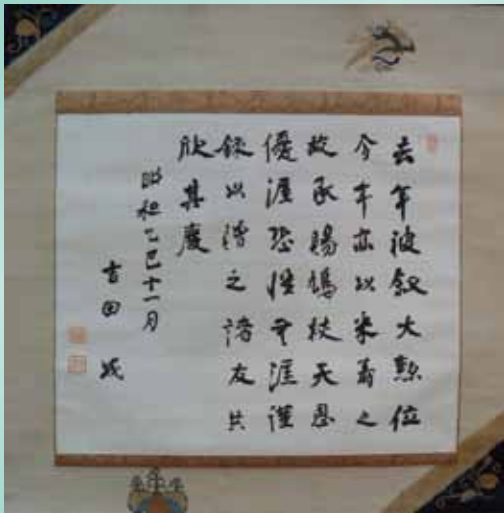 去年被叙大勲位
今年亦以米寿之
故承賜鳩杖天恩
優渥恐惶無涯謹
録以贈之諸友共
欣其慶
昭和乙巳十一月
吉田茂